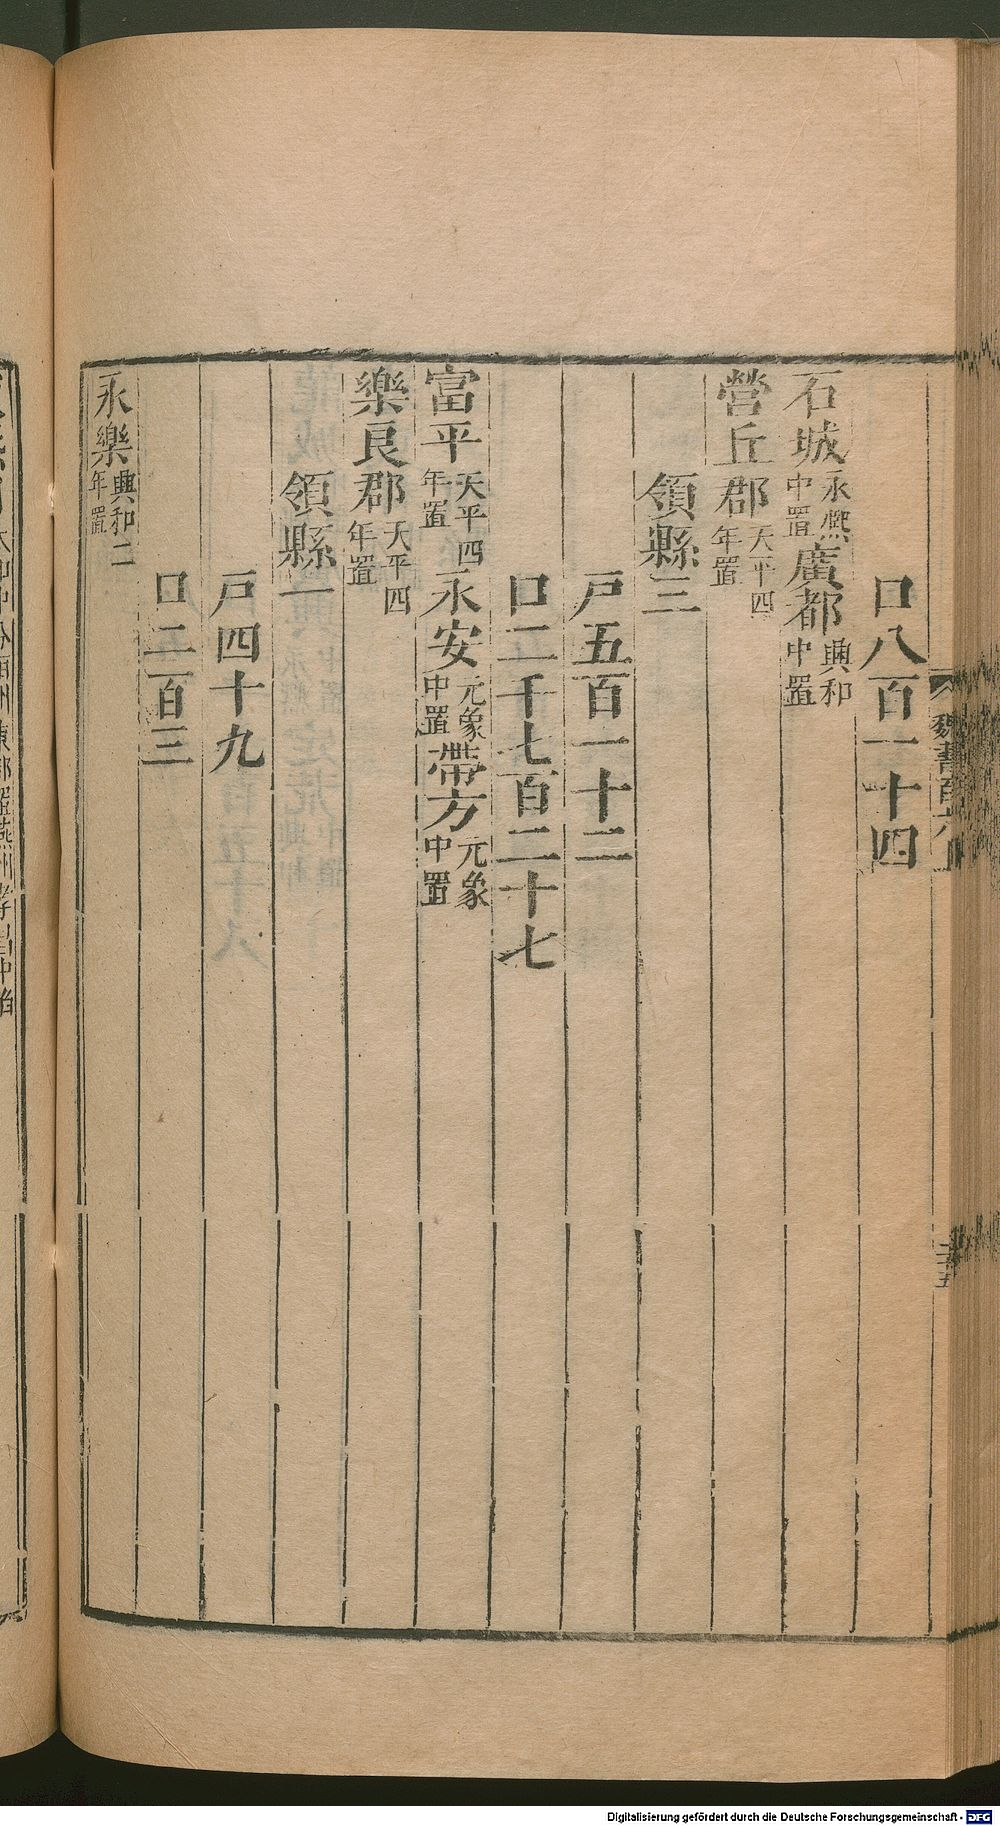 口八百一十四
石城永熙中置廣都興和中置
營丘郡天平四年置
領縣三
戸五百一十二
口二千七百二十七
富平天平四年置永安元象中置帶方元象中置
樂良郡天平四年置
領縣一
戸四十九
口二百三
永樂興和二年置
魏書百六上
Digitalisierung gefördert durch die Deutsche Forschungsgemeinschaft - DFG